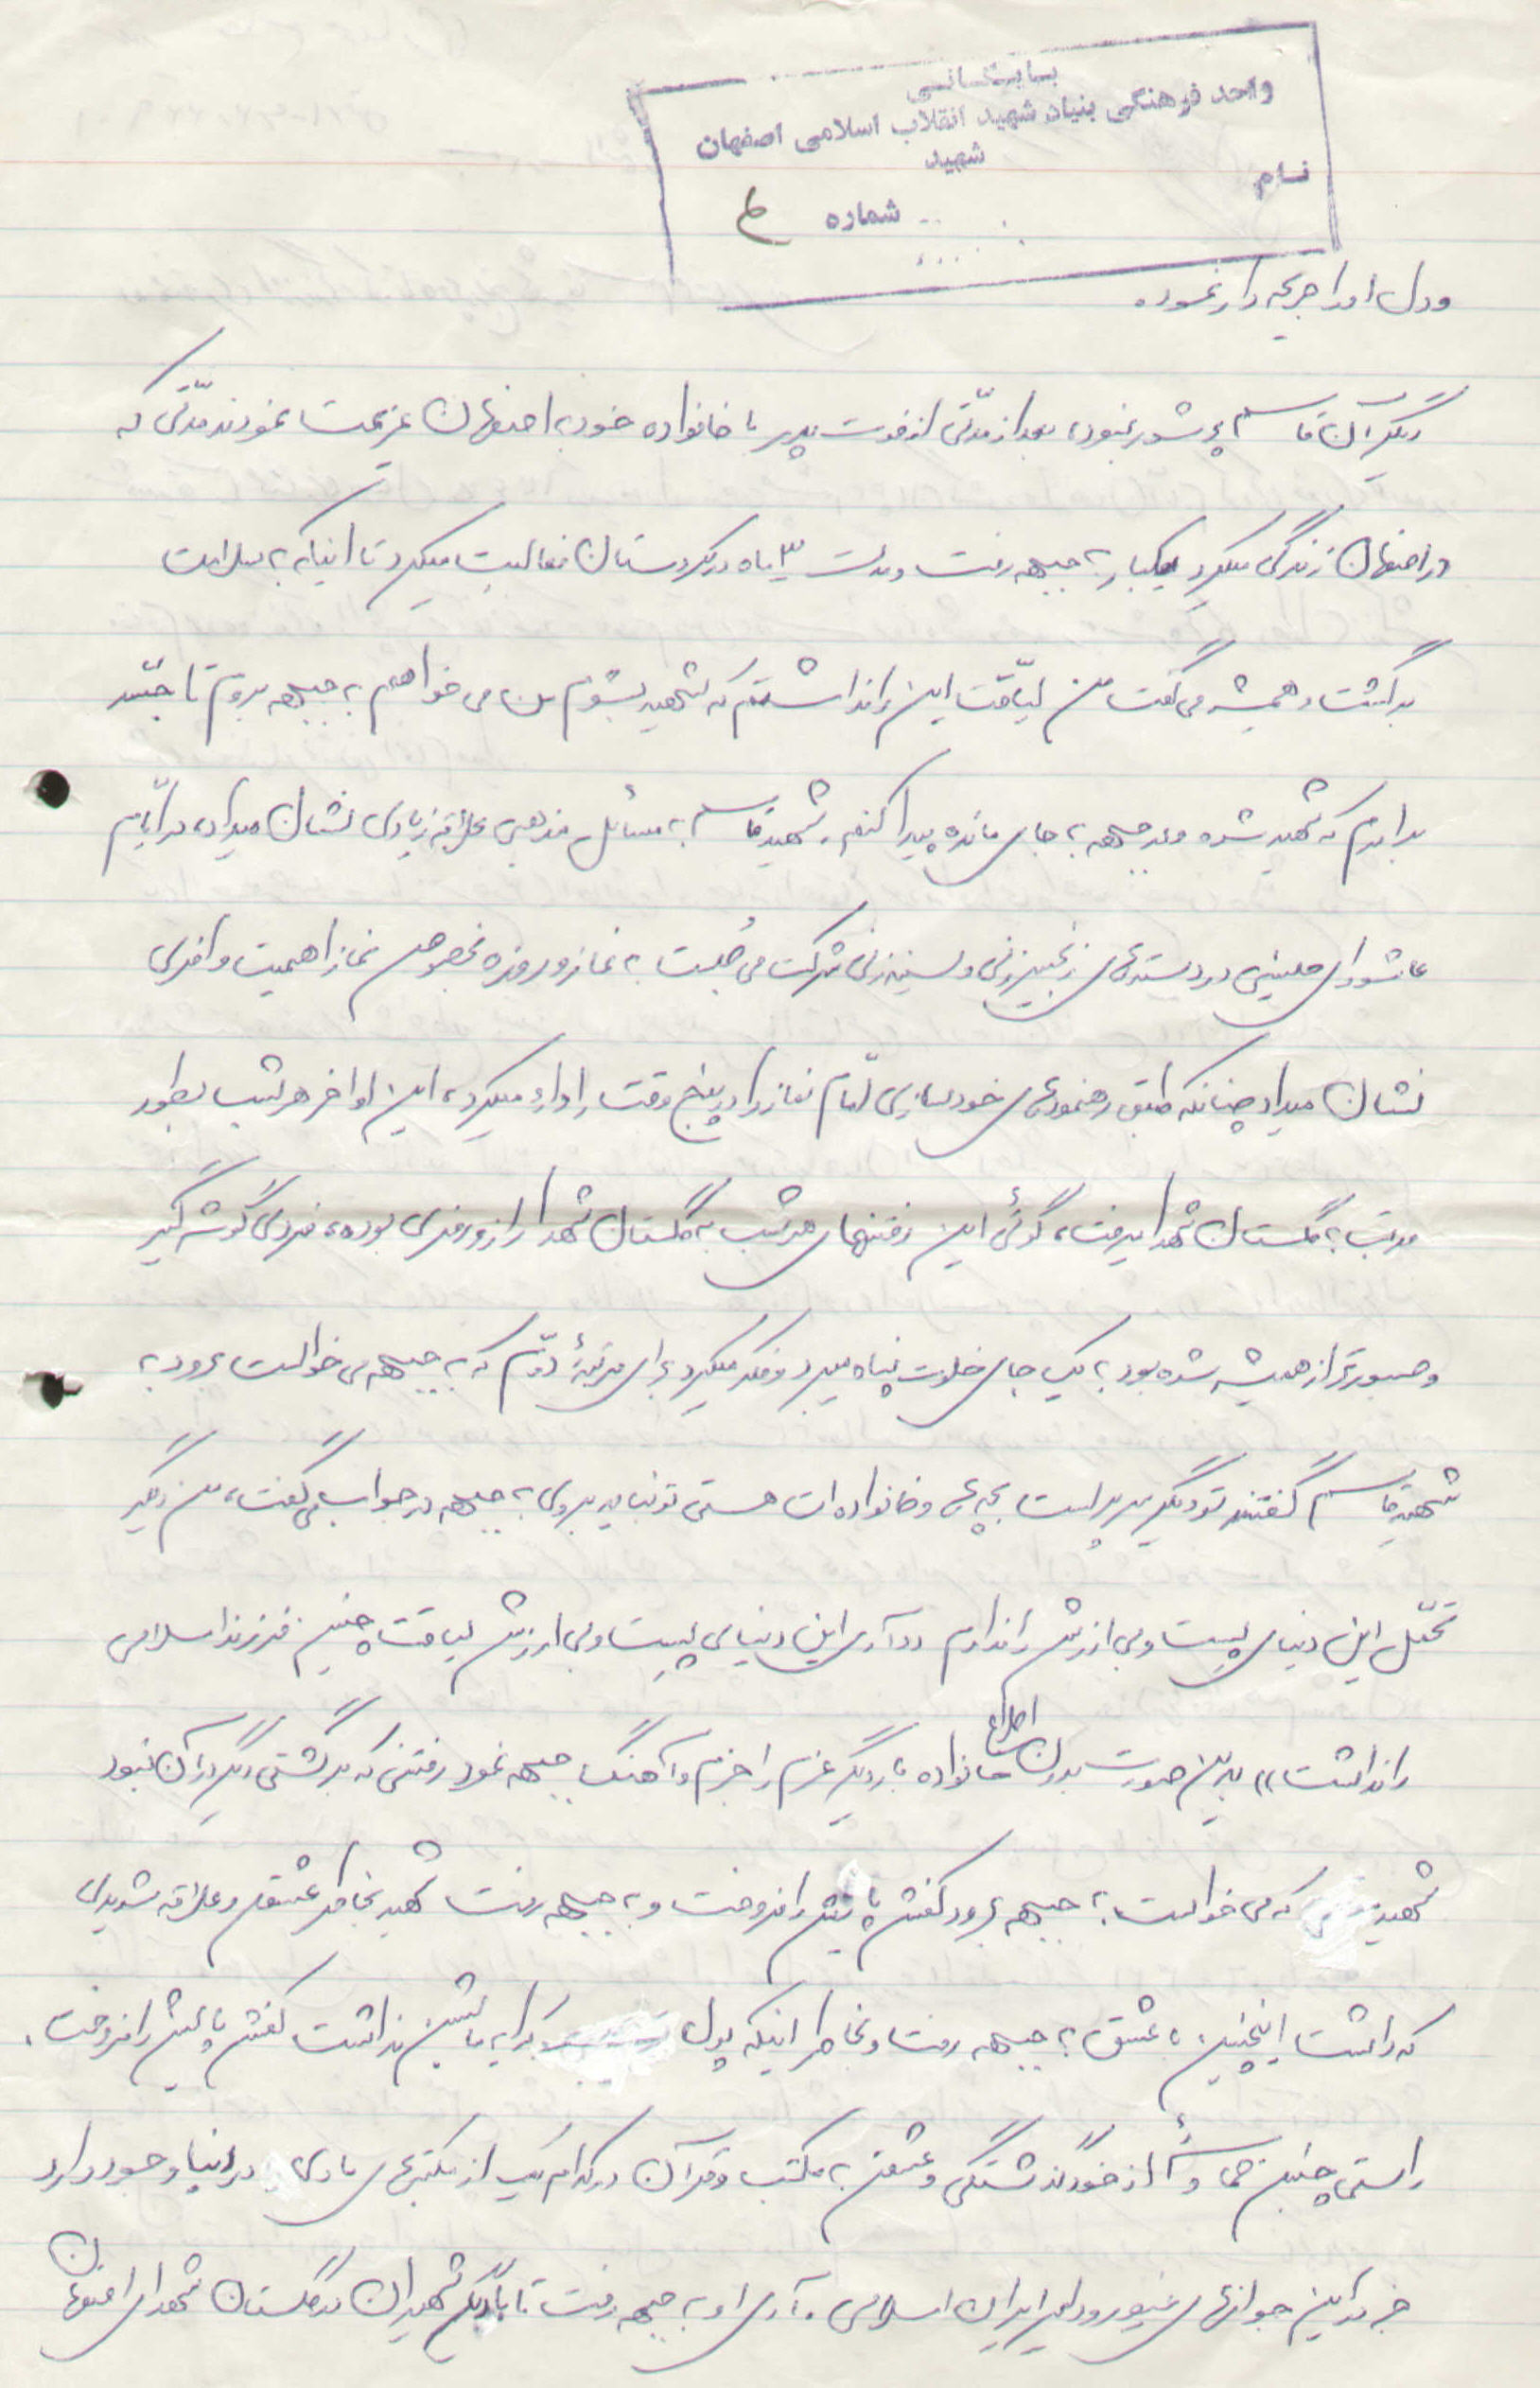 بایگانی
واحد فرهنگی بنیاد شهید انقلاب اسلامی اصفهان
شهید
نام
شماره ع
و دل او را جریحه دار نمود.
دیگر آن قاسم پر شور نبود، بعد از مدّتی از فوت پدر با خانواده خود به اصفهان عزیمت نمودند مدّتی که
در اصفهان زندگی میکرد یکبار به جبهه رفت و مدت ۳ ماه در کردستان فعالیت میکرد تا اینکه به سلامت
برگشت و همیشه می گفت من لیاقت این را نداشتم که شهید بشوم من می خواهم به جبهه بروم تا جسد
برادرم که شهید شده و در جبهه به جای مانده پیدا کنم. شهید قاسم به مسائل مذهبی علاقه زیادی نشان میداد، در ایّام
عاشورای حسینی در دسته های زنجیرزنی و سینه زنی شرکت می جست به نماز و روزه بخصوص نماز اهمیت وافری
نشان میداد چنانکه طبق رهنمودهای خودسازی امام نماز را در پنج وقت اداء میکرد، این اواخر هر شب بطور
مرتب به گلستان شهدا میرفت، گوئی این رفتنهای هر شب به گلستان شهدا را از و رمزی بوده، فردی گوشه گیر
و صبورتر از همیشه شده بود به یک جای خلوت پناه میبرد و فکر میکرد برای مرتبهٔ دوّم که به جبهه می خواست برود به
شهید قاسم گفتند تو دیگر سرپرست بچه ها و خانواده ات هستی تو نباید بروی به جبهه در جواب می گفت، من دیگر
تحمّل این دنیای پست و بی ارزش را ندارم ((آری این دنیای پست و بی ارزش لیاقت چنین فرزند اسلامی
را نداشت)) بدین صورت بدون اطلاع خانواده بار دیگر عزم را جزم و آهنگ جبهه نمود رفتنی که برگشتی دیگر در آن نبود
شهید که می خواست به جبهه برود کفش پایش را فروخت و به جبهه رفت شهید بخاطر عشق و علاقه شدیدی
که داشت اینچنین با عشق به جبهه رفت و بخاطر اینکه پول کرایه ماشین نداشت کفش پایش را فروخت.
راستی چنین حماسه و از خودگذشتگی و عشق به مکتب و قرآن در کدام یک از مکتبهای مادی در دنیا وجود دارد
جز در این جوانهای غیور و دلیر ایران اسلامی. آری او به جبهه رفت تا با دیگر شهیدان در گلستان شهدای اصفهان